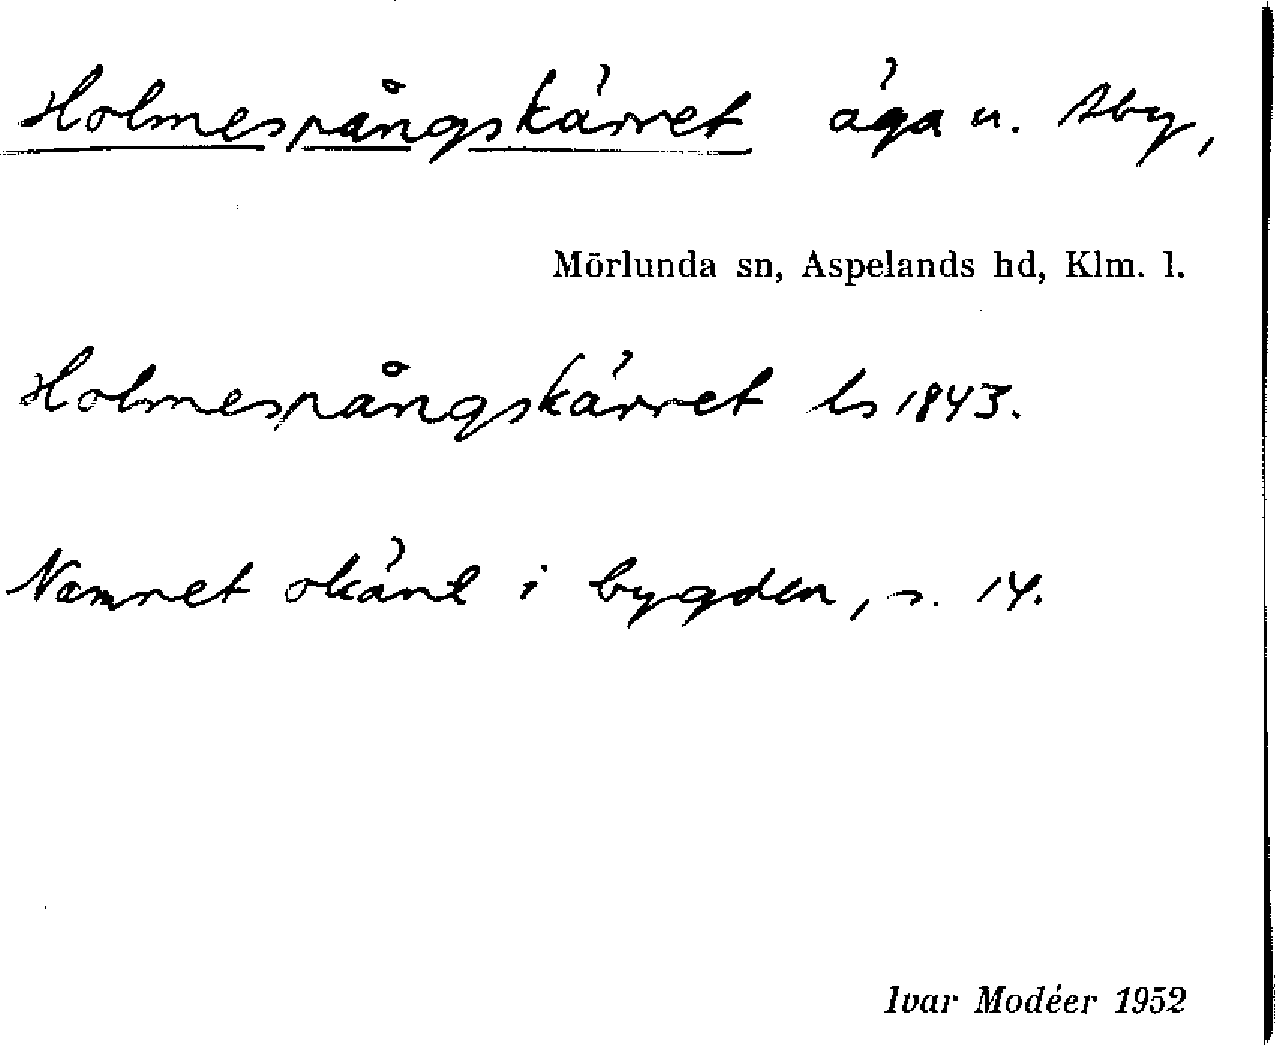 Holmespångskärret äga u. Åby,
Mörlunda sn, Aspelands hd, Klm. l.
Holmespångskärret ls 1843.
Namnet okänt i bygden, s. 14.
Ivar Modéer 1952